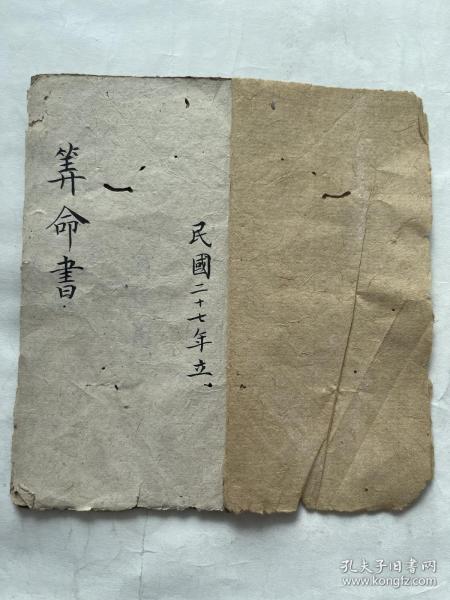 民國二十七年立
筭命書
孔夫子旧书网
www.kongfz.com